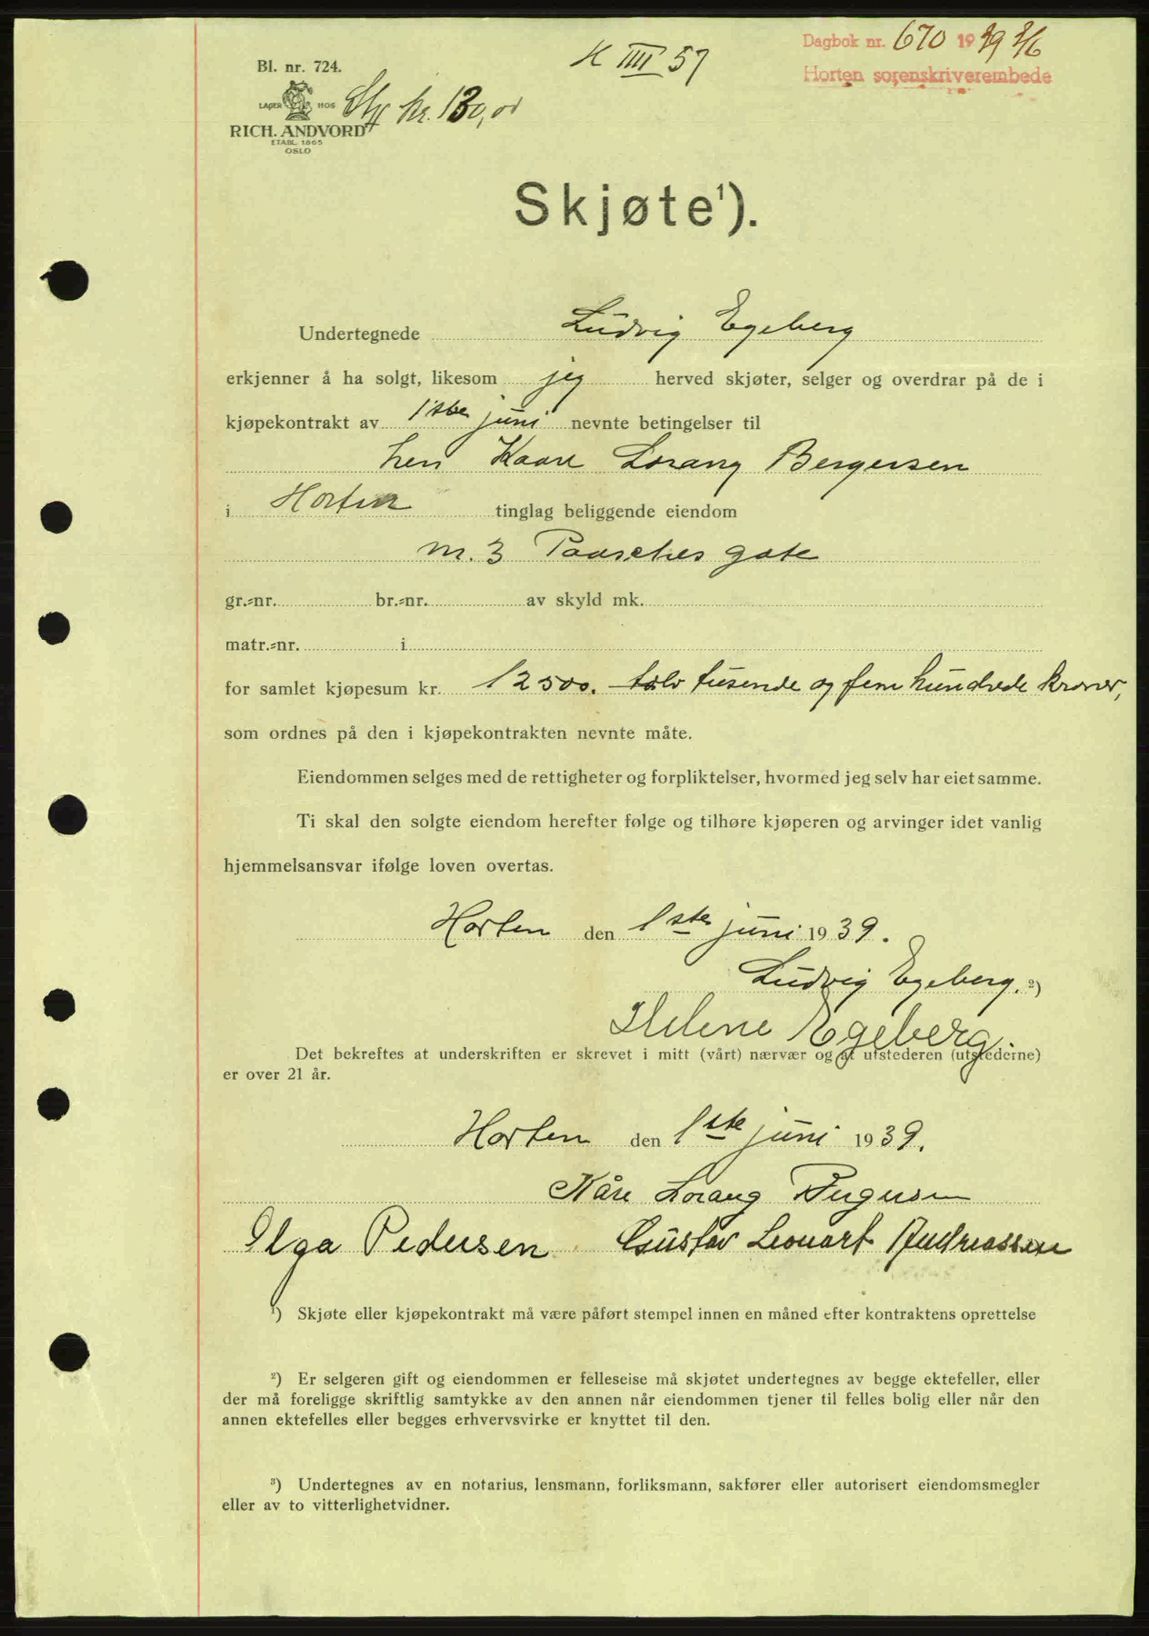 Dagbok nr. 670 1939 2/6
Horten sorenskriverembede
K IIII 57
Bl. nr. 724.
LAGER HOS
kr. 130,00
RICH. ANDVORD
ETABL. 1865
OSLO
Skjøte¹).
Undertegnede Ludvig Egeberg
erkjenner å ha solgt, likesom jeg herved skjøter, selger og overdrar på de i
kjøpekontrakt av 1ste juni nevnte betingelser til
herr Kaare Lorang Bergersen
i Horten tinglag beliggende eiendom
nr. 3 Paasches gate
gr.-nr. br.-nr. av skyld mk.
matr.-nr. i
for samlet kjøpesum kr. 12500. tolv tusende og fem hundrede kroner,
som ordnes på den i kjøpekontrakten nevnte måte.
Eiendommen selges med de rettigheter og forpliktelser, hvormed jeg selv har eiet samme.
Ti skal den solgte eiendom herefter følge og tilhøre kjøperen og arvinger idet vanlig
hjemmelsansvar ifølge loven overtas.
Horten den 1ste juni 1939.
Ludvig Egeberg. ²)
Helene Egeberg.
Det bekreftes at underskriften er skrevet i mitt (vårt) nærvær og at utstederen (utstederne)
er over 21 år.
Horten den 1ste juni 1939.
Kåre Lorang Bergersen
Olga Pedersen Gustav Leonart Andreassen
¹) Skjøte eller kjøpekontrakt må være påført stempel innen en måned efter kontraktens oprettelse
²) Er selgeren gift og eiendommen er felleseie må skjøtet undertegnes av begge ektefeller, eller
der må foreligge skriftlig samtykke av den annen når eiendommen tjener til felles bolig eller når den
annen ektefelles eller begges erhvervsvirke er knyttet til den.
³) Undertegnes av en notarius, lensmann, forliksmann, sakfører eller autorisert eiendomsmegler
eller av to vitterlighetvidner.